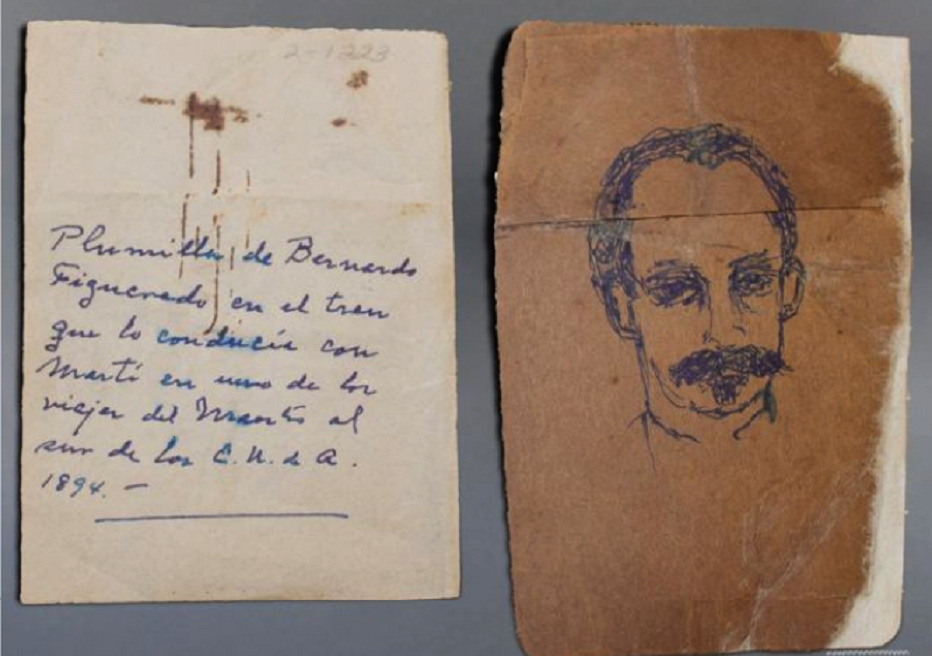 2-1223
Plumilla de Bernardo
Figueredo en el tren
que lo conducía con
Martí en uno de los
viajes del Maestro al
sur de los E. U. de A.
1894. —